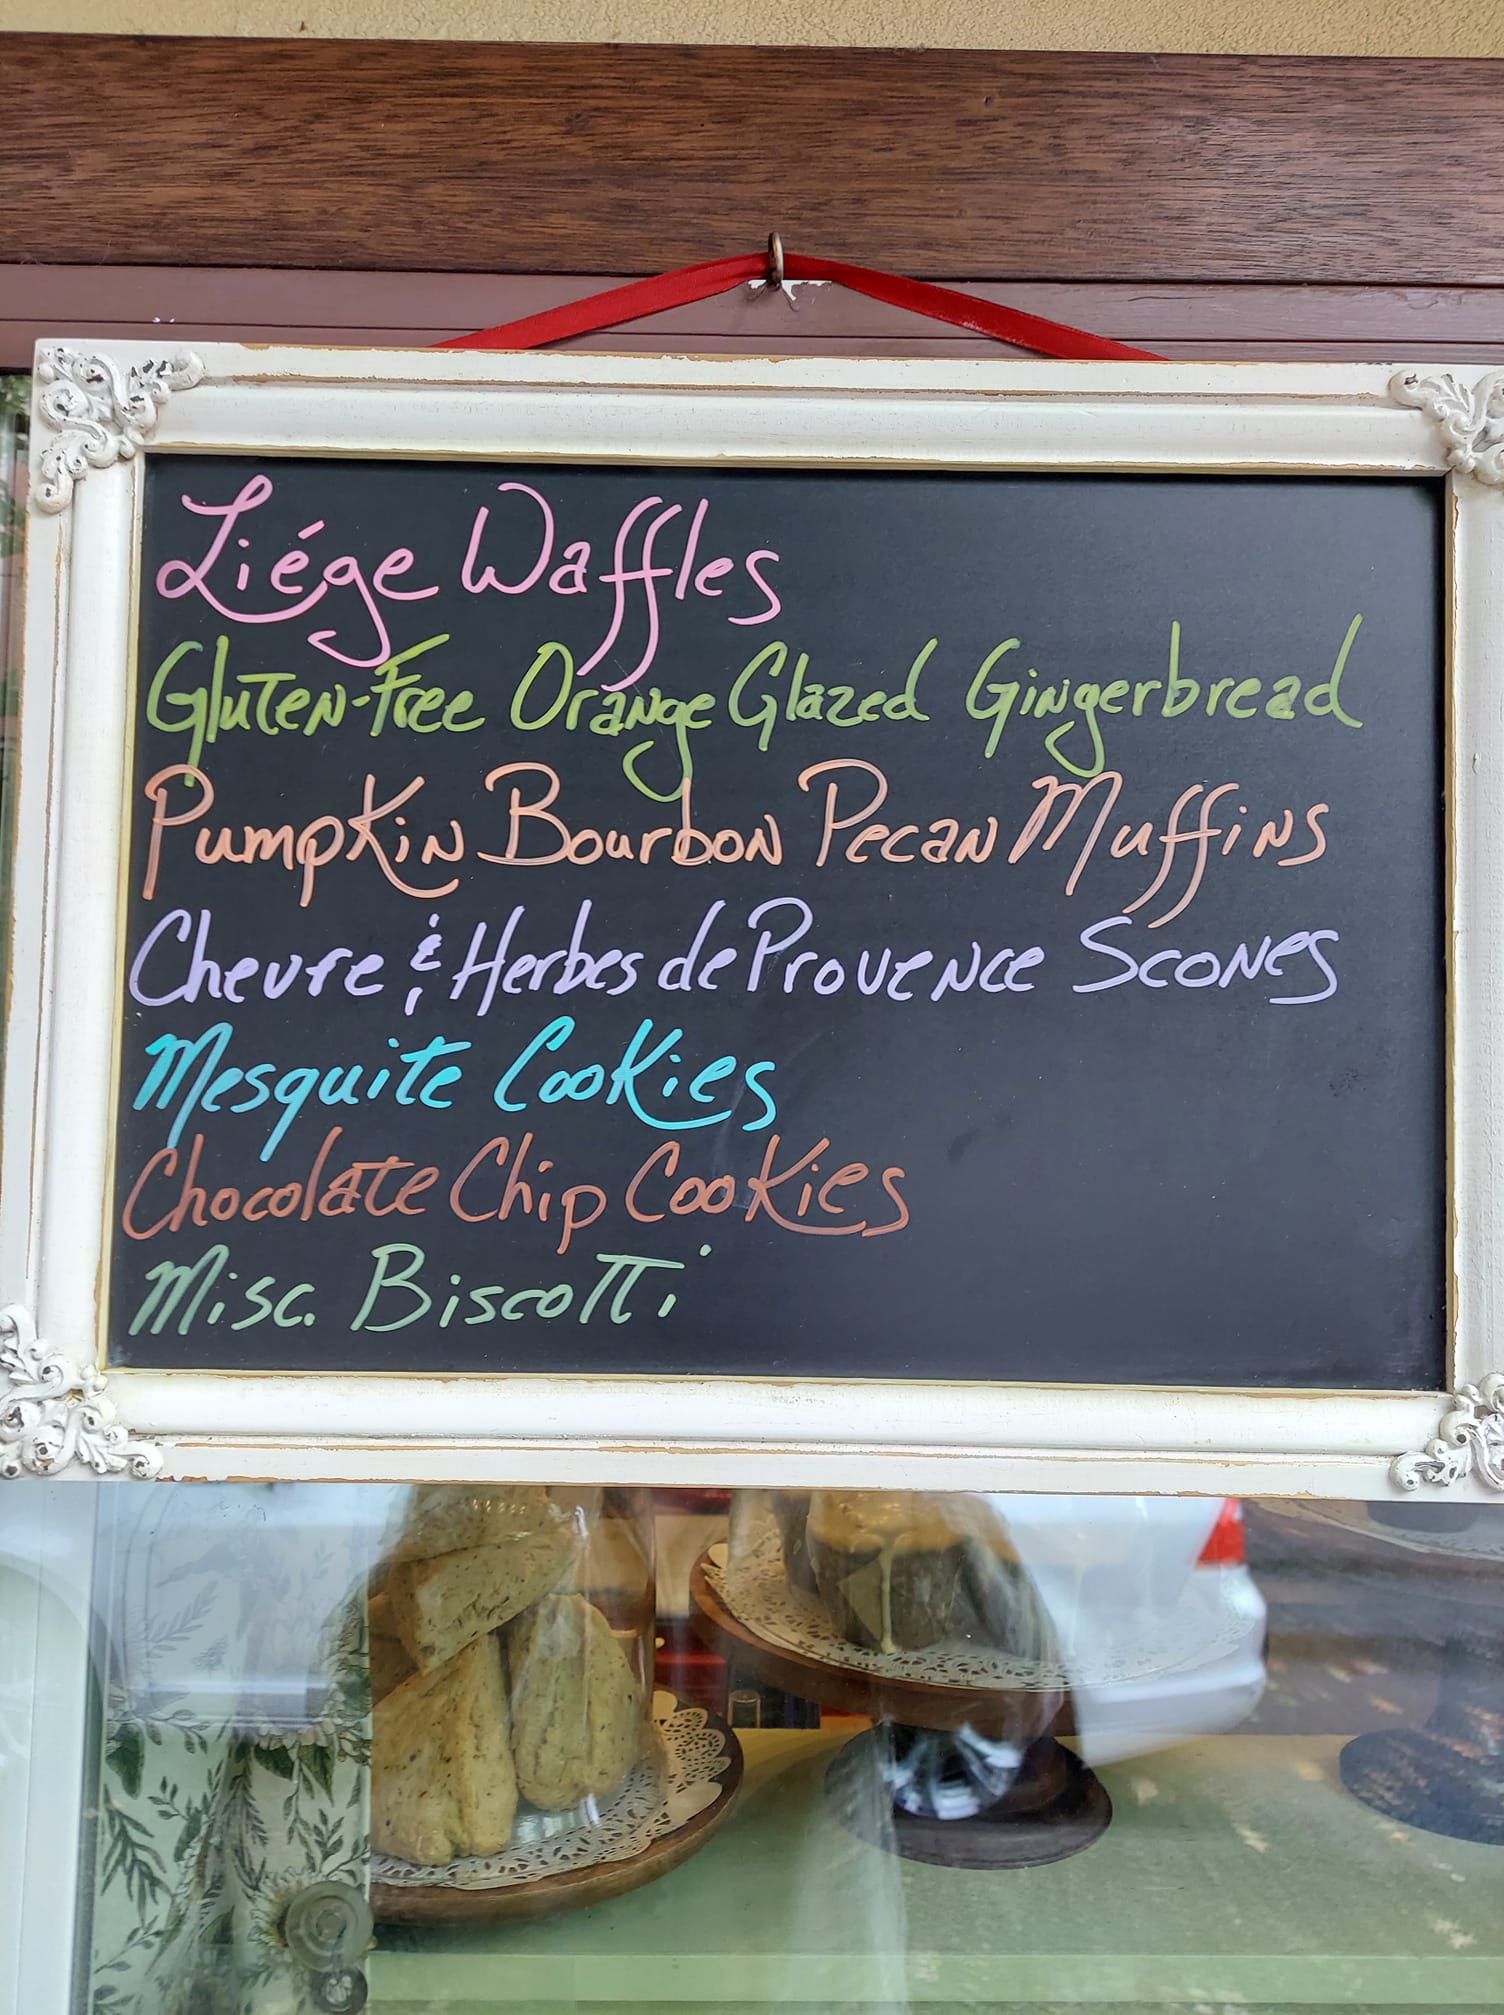 Liége Waffles
Gluten-Free Orange Glazed Gingerbread
Pumpkin Bourbon Pecan Muffins
Chevre & Herbes de Provence Scones
Mesquite Cookies
Chocolate Chip Cookies
Misc. Biscotti